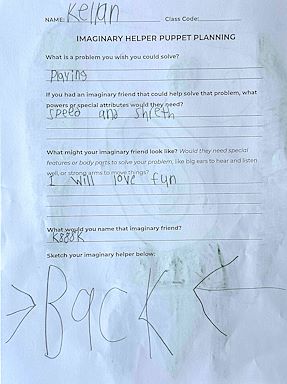 NAME: Kellan Class Code:
IMAGINARY HELPER PUPPET PLANNING
What is a problem you wish you could solve?
Playing
If you had an imaginary friend that could help solve that problem, what
powers or special attributes would they need?
speed and shreth
What might your imaginary friend look like? Would they need special
features or body parts to solve your problem, like big ears to hear and listen
well, or strong arms to move things?
I will love fun
What would you name that imaginary friend?
Sketch your imaginary helper below:
BacK